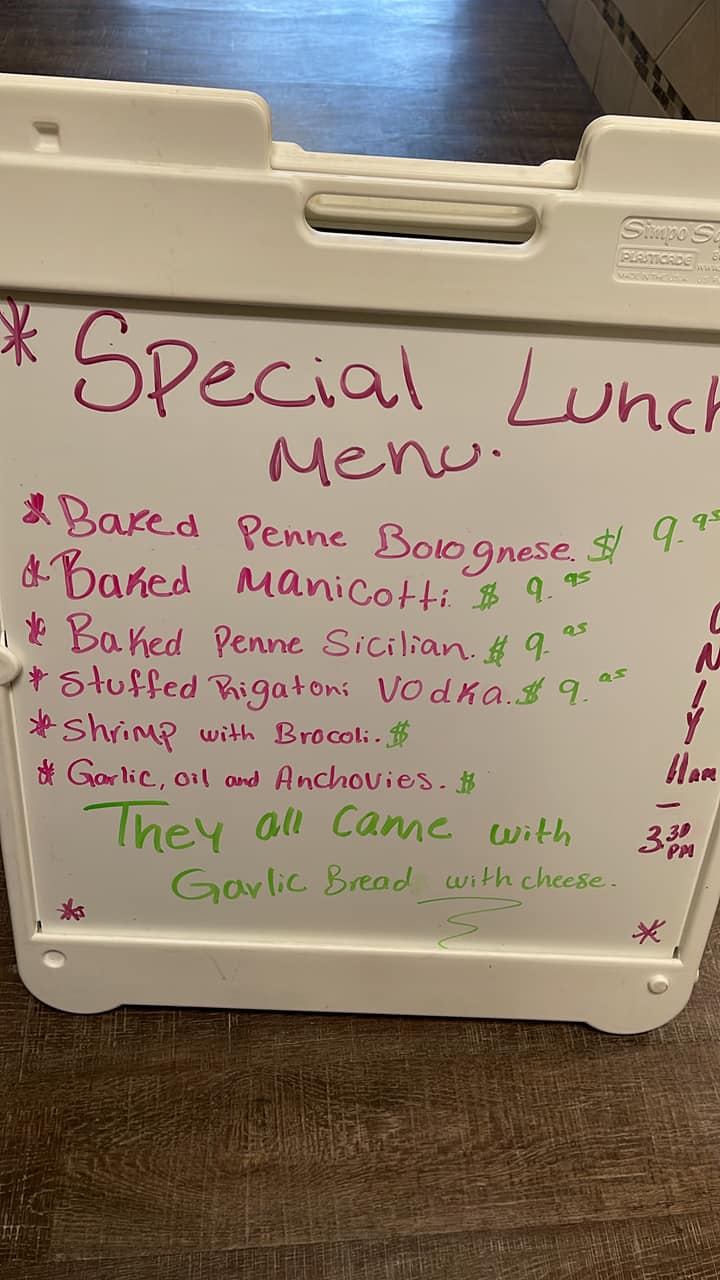 Simpo
PLASTICADE
MADE IN THE U.S.A.
* Special Lunch
Menu.
* Baked Penne Bolognese. $ 9.95
* Baked Manicotti. $ 9.95
* Baked Penne Sicilian. $ 9.95
* Stuffed Rigatoni Vodka. $ 9.95
* Shrimp with Brocoli. $
* Garlic, oil and Anchovies. $
They all came with
Garlic Bread with cheese.
* *
O
N
l
Y
11am
-
3.30
PM